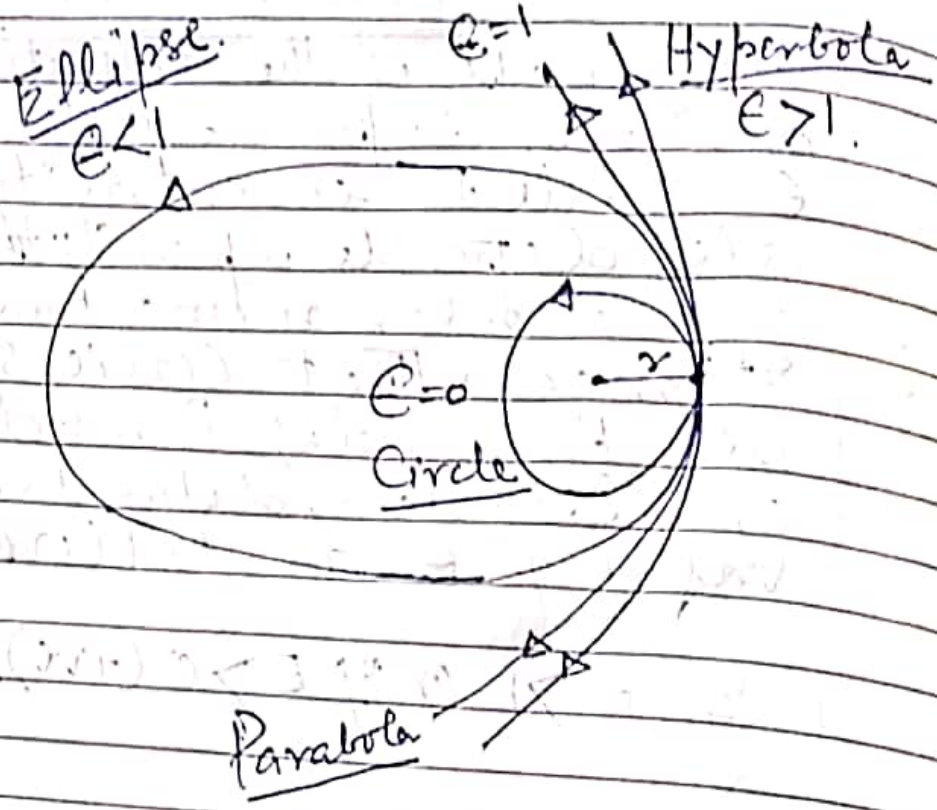 Ellipse.
ϵ<1
ϵ=1
Hyperbola
ϵ>1
r
ϵ=0
Circle
Parabola